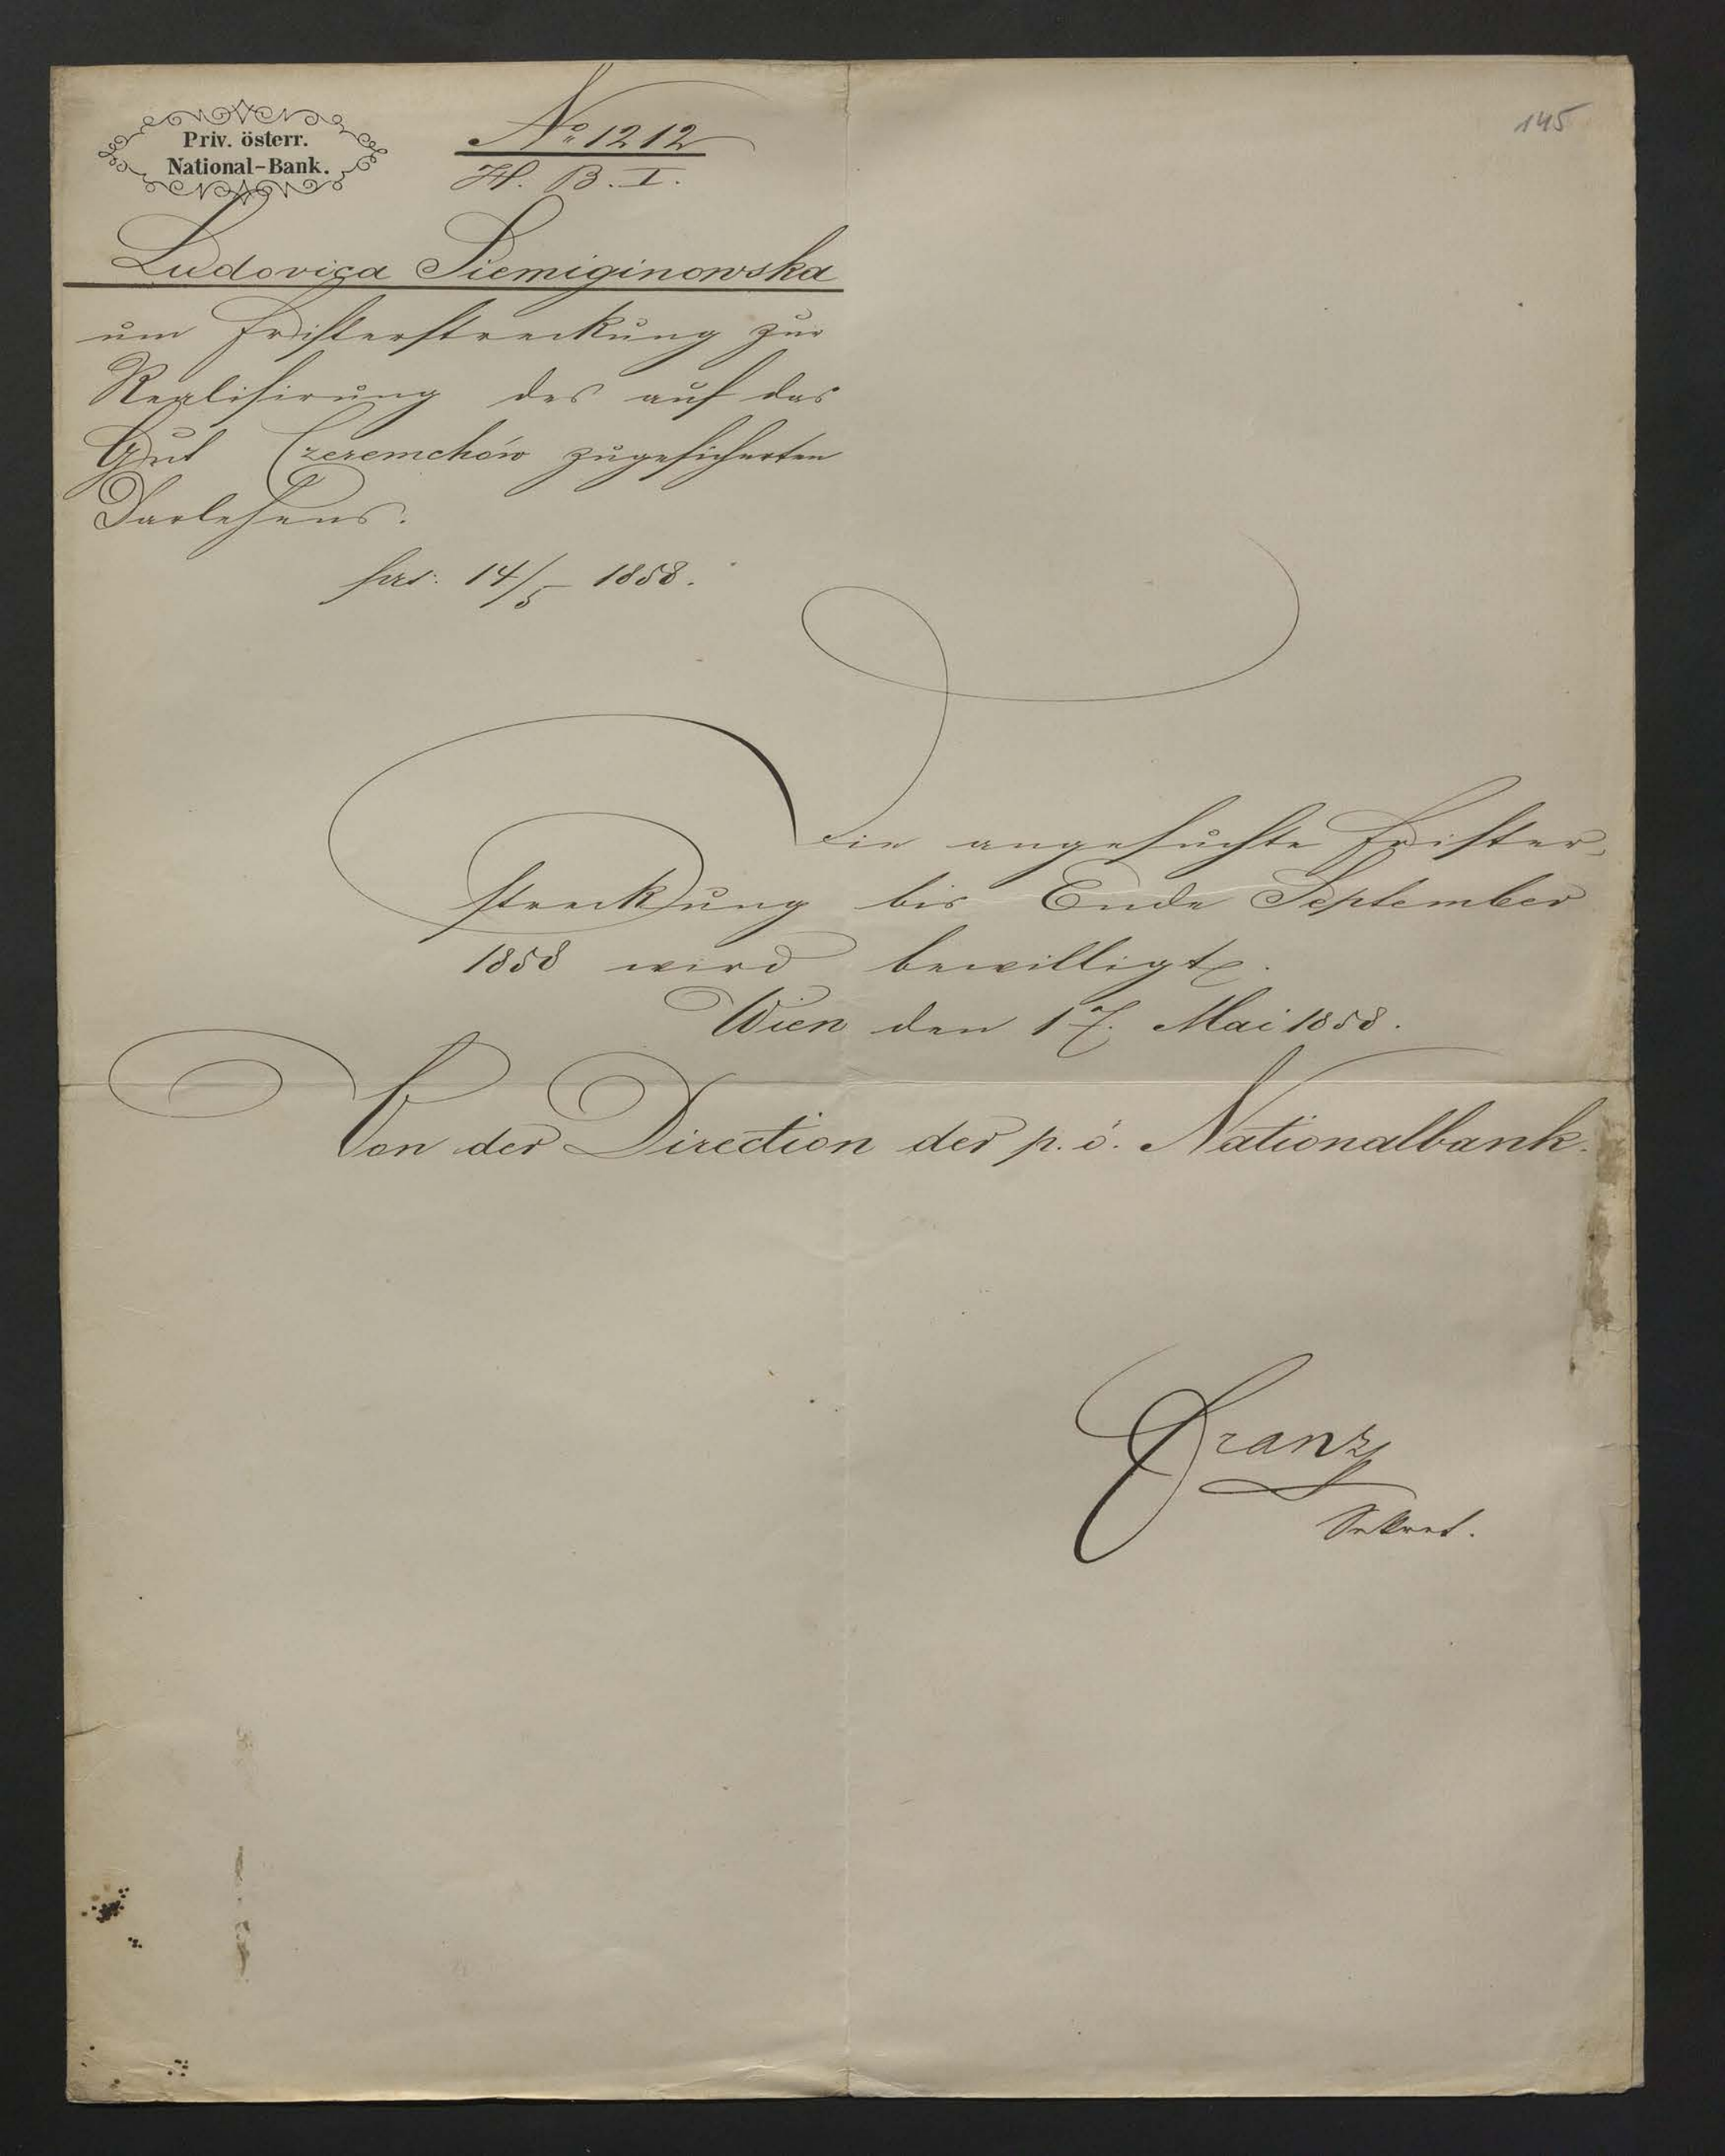 145
Priv. österr.
National-Bank.
No. 1212
H. B. I.
Ludovica Siemiginowska
um Fristerstreckung zur
Realisirung des auf das
Gut Czeremchów zugesicherten
Darlehens.
prs. 14/5 1858.
Die angesuchte Frister-
streckung bis Ende September
1858 wird bewilligt.
Wien den 17. Mai 1858.
Von der Direction der p. ö. Nationalbank.
Franz
Sekret.